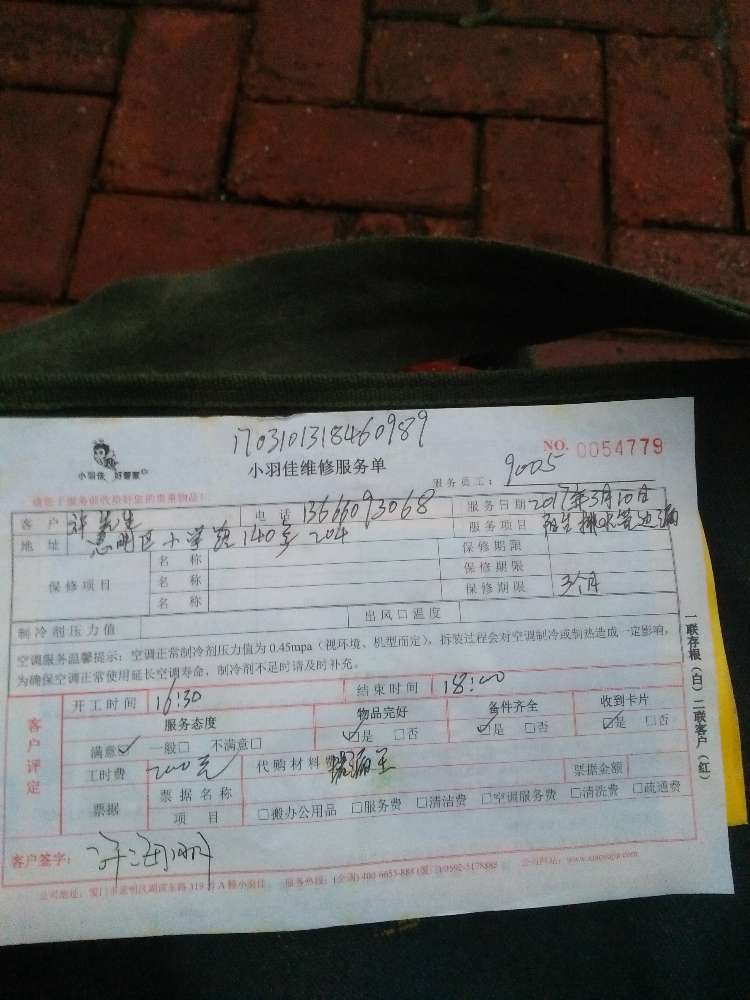 1703101318460989
小羽佳 好管家
小羽佳维修服务单
NO. 0054779
服务员工： 9005
请您于服务前收拾好您的贵重物品！
客户 许先生 电话 13666093068 服务日期 2017年3月10日
地址 思明区小学路140号204 服务项目
保修项目 名称 保修期限
名称 保修期限
名称 保修期限 3个月
制冷剂压力值 出风口温度
空调服务温馨提示：空调正常制冷剂压力值为 0.45mpa（视环境、机型而定），拆装过程会对空调制冷或制热造成一定影响，
为确保空调正常使用延长空调寿命，制冷剂不足时请及时补充。
客户评定
开工时间 16:30 结束时间 18:00
服务态度 物品完好 备件齐全 收到卡片
满意☑ 一般□ 不满意□ ☑是 □否 ☑是 □否 ☑是 □否
工时费 200元 代购材料费 堵漏王 票据金额
票据 票据名称
项目 □搬办公用品 □服务费 □清洁费 □空调服务费 □清洗费 □疏通费
客户签字：
一联存根（白）二联客户（红）
公司地址：厦门市思明区湖滨东路 319 号 A 幢小羽佳 服务热线：(全国) 400-6653-888 (厦门)0592-5178885 公司网站：www.xiaoyujia.com